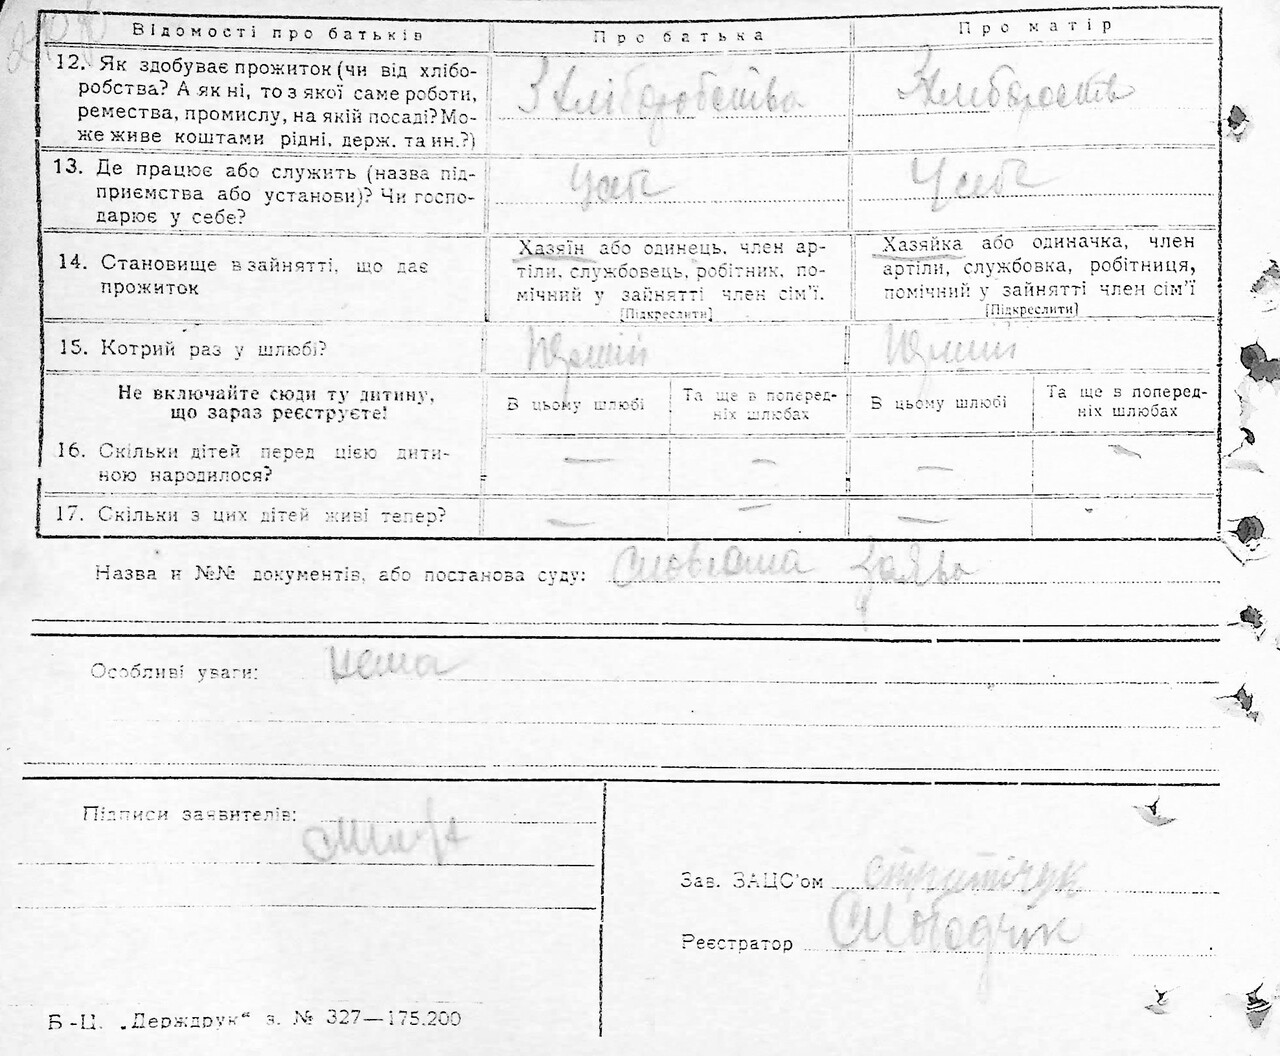 Відомості про батьків
Про батька
Про матір
12. Як здобуває прожиток (чи від хлібо-
робства? А як ні, то з якої саме роботи,
ремества, промислу, на якій посаді? Мо-
же живе коштами рідні, держ. та ин.?)
З хліборобства
З хліборобств
13. Де працює або служить (назва під-
приємства або установи)? Чи госпо-
дарює у себе?
У себе
У себе
14. Становище в зайнятті, що дає
прожиток
Хазяїн або одинець, член ар-
тіли, службовець, робітник, по-
мічний у зайнятті член сім’ї.
[Підкреслити]
Хазяйка або одиначка, член
артіли, службовка, робітниця,
помічний у зайнятті член сім’ї
[Підкреслити]
15. Котрий раз у шлюбі?
Не включайте сюди ту дитину,
що зараз реєструєте!
В цьому шлюбі
Та ще в поперед-
ніх шлюбах
В цьому шлюбі
Та ще в поперед-
ніх шлюбах
16. Скільки дітей перед цією дити-
ною народилося?
— — — —
17. Скільки з цих дітей живі тепер?
— — —
Назва и №№ документів, або постанова суду: заява
Особливі уваги: Нема
Підписи заявителів:
Зав. ЗАЦС’ом
Реєстратор
Б-Ц. „Держдрук“ з. № 327—175.200